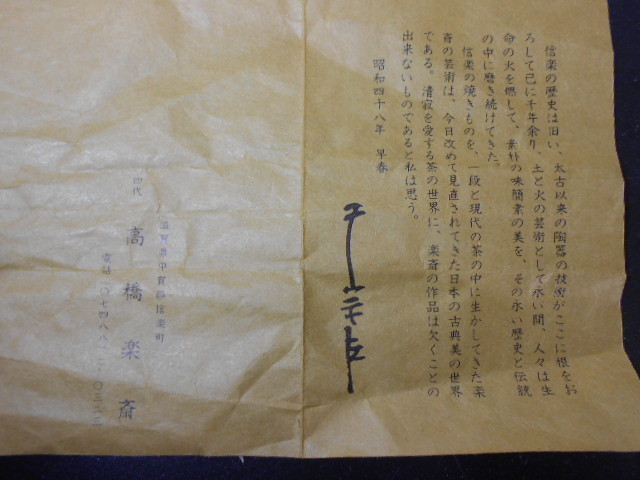 信楽の歴史は旧い、太古以来の陶器の技術がここに根をお
ろして已に千年余り、土と火の芸術として永い間、人々は生
命の火を燃して、素朴の味簡素の美を、その永い歴史と伝統
の中に磨き続けてきた。
信楽の焼きものを、一段と現代の茶の中に生かしてきた楽
斎の芸術は、今日改めて見直されてきた日本の古典美の世界
である。清寂を愛する茶の世界に、楽斎の作品は欠くことの
出来ないものであると私は思う。
昭和四十八年 早春
滋賀県甲賀郡信楽町
四代 高橋楽斎
電話(〇七四八八)二-〇三二三